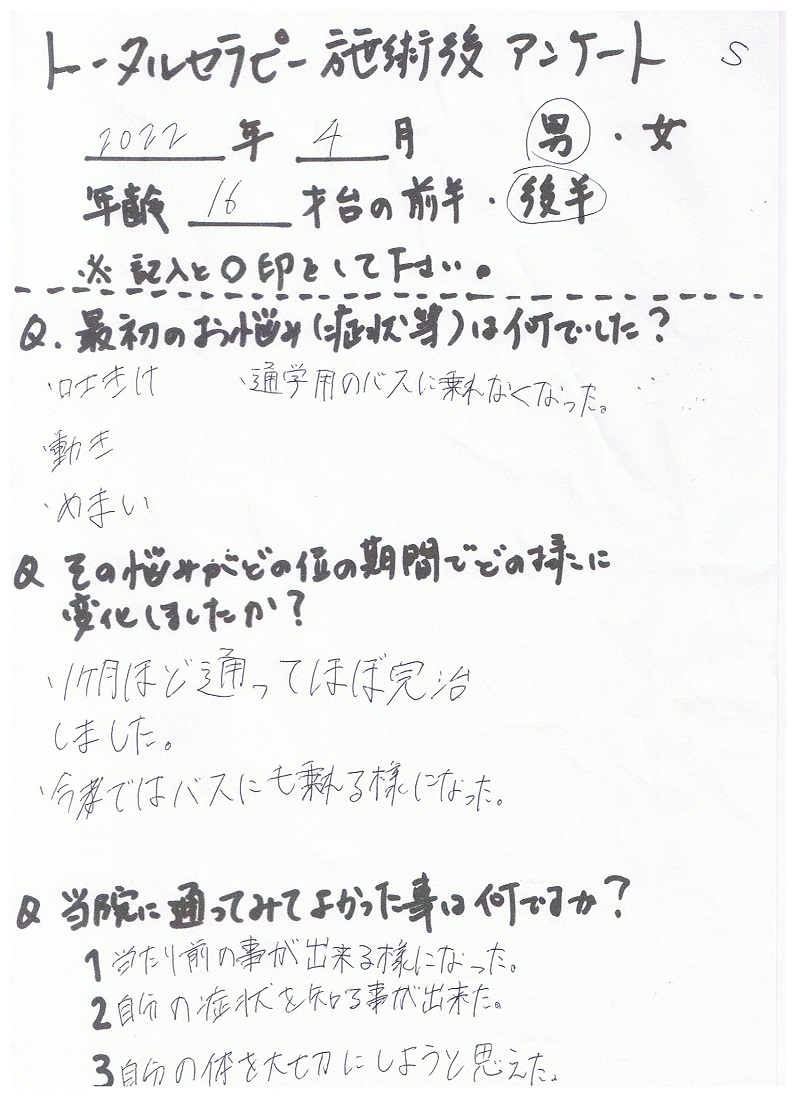 トータルセラピー施術後 アンケート S
2022 年 4 月 男・女
年齢 16 才台の前半・後半
※記入と〇印をして下さい。
Q. 最初のお悩み(症状等)は何でした?
・吐きけ ・通学用のバスに乗れなくなった。
・動き
・めまい
Q その悩みがどの位の期間でどの様に
変化しましたか?
・1ヶ月ほど通ってほぼ完治
しました。
・今ではバスにも乗れる様になった。
Q 当院に通ってみてよかった事は何ですか?
1 当たり前の事が出来る様になった。
2 自分の症状を知る事が出来た。
3 自分の体を大切にしようと思えた。